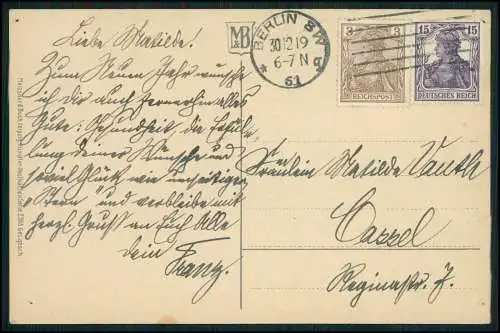 Liebe Matilde!
Zum Neuen Jahr wünsche
ich dir auch fernerhin alles
Gute: Gesundheit, die Erfül-
lung deiner Wünsche und
soviel Glück wie
Stern und verbleibe mit
herzl. Gruß an Euch Alle
dein
Franz.
M&B
BERLIN SW
30.12.19
6-7 N
* 61 g
3 3
REICHSPOST
15 15
DEUTSCHES REICH
Fräulein Matilde
Cassel
Reginastr. 7.